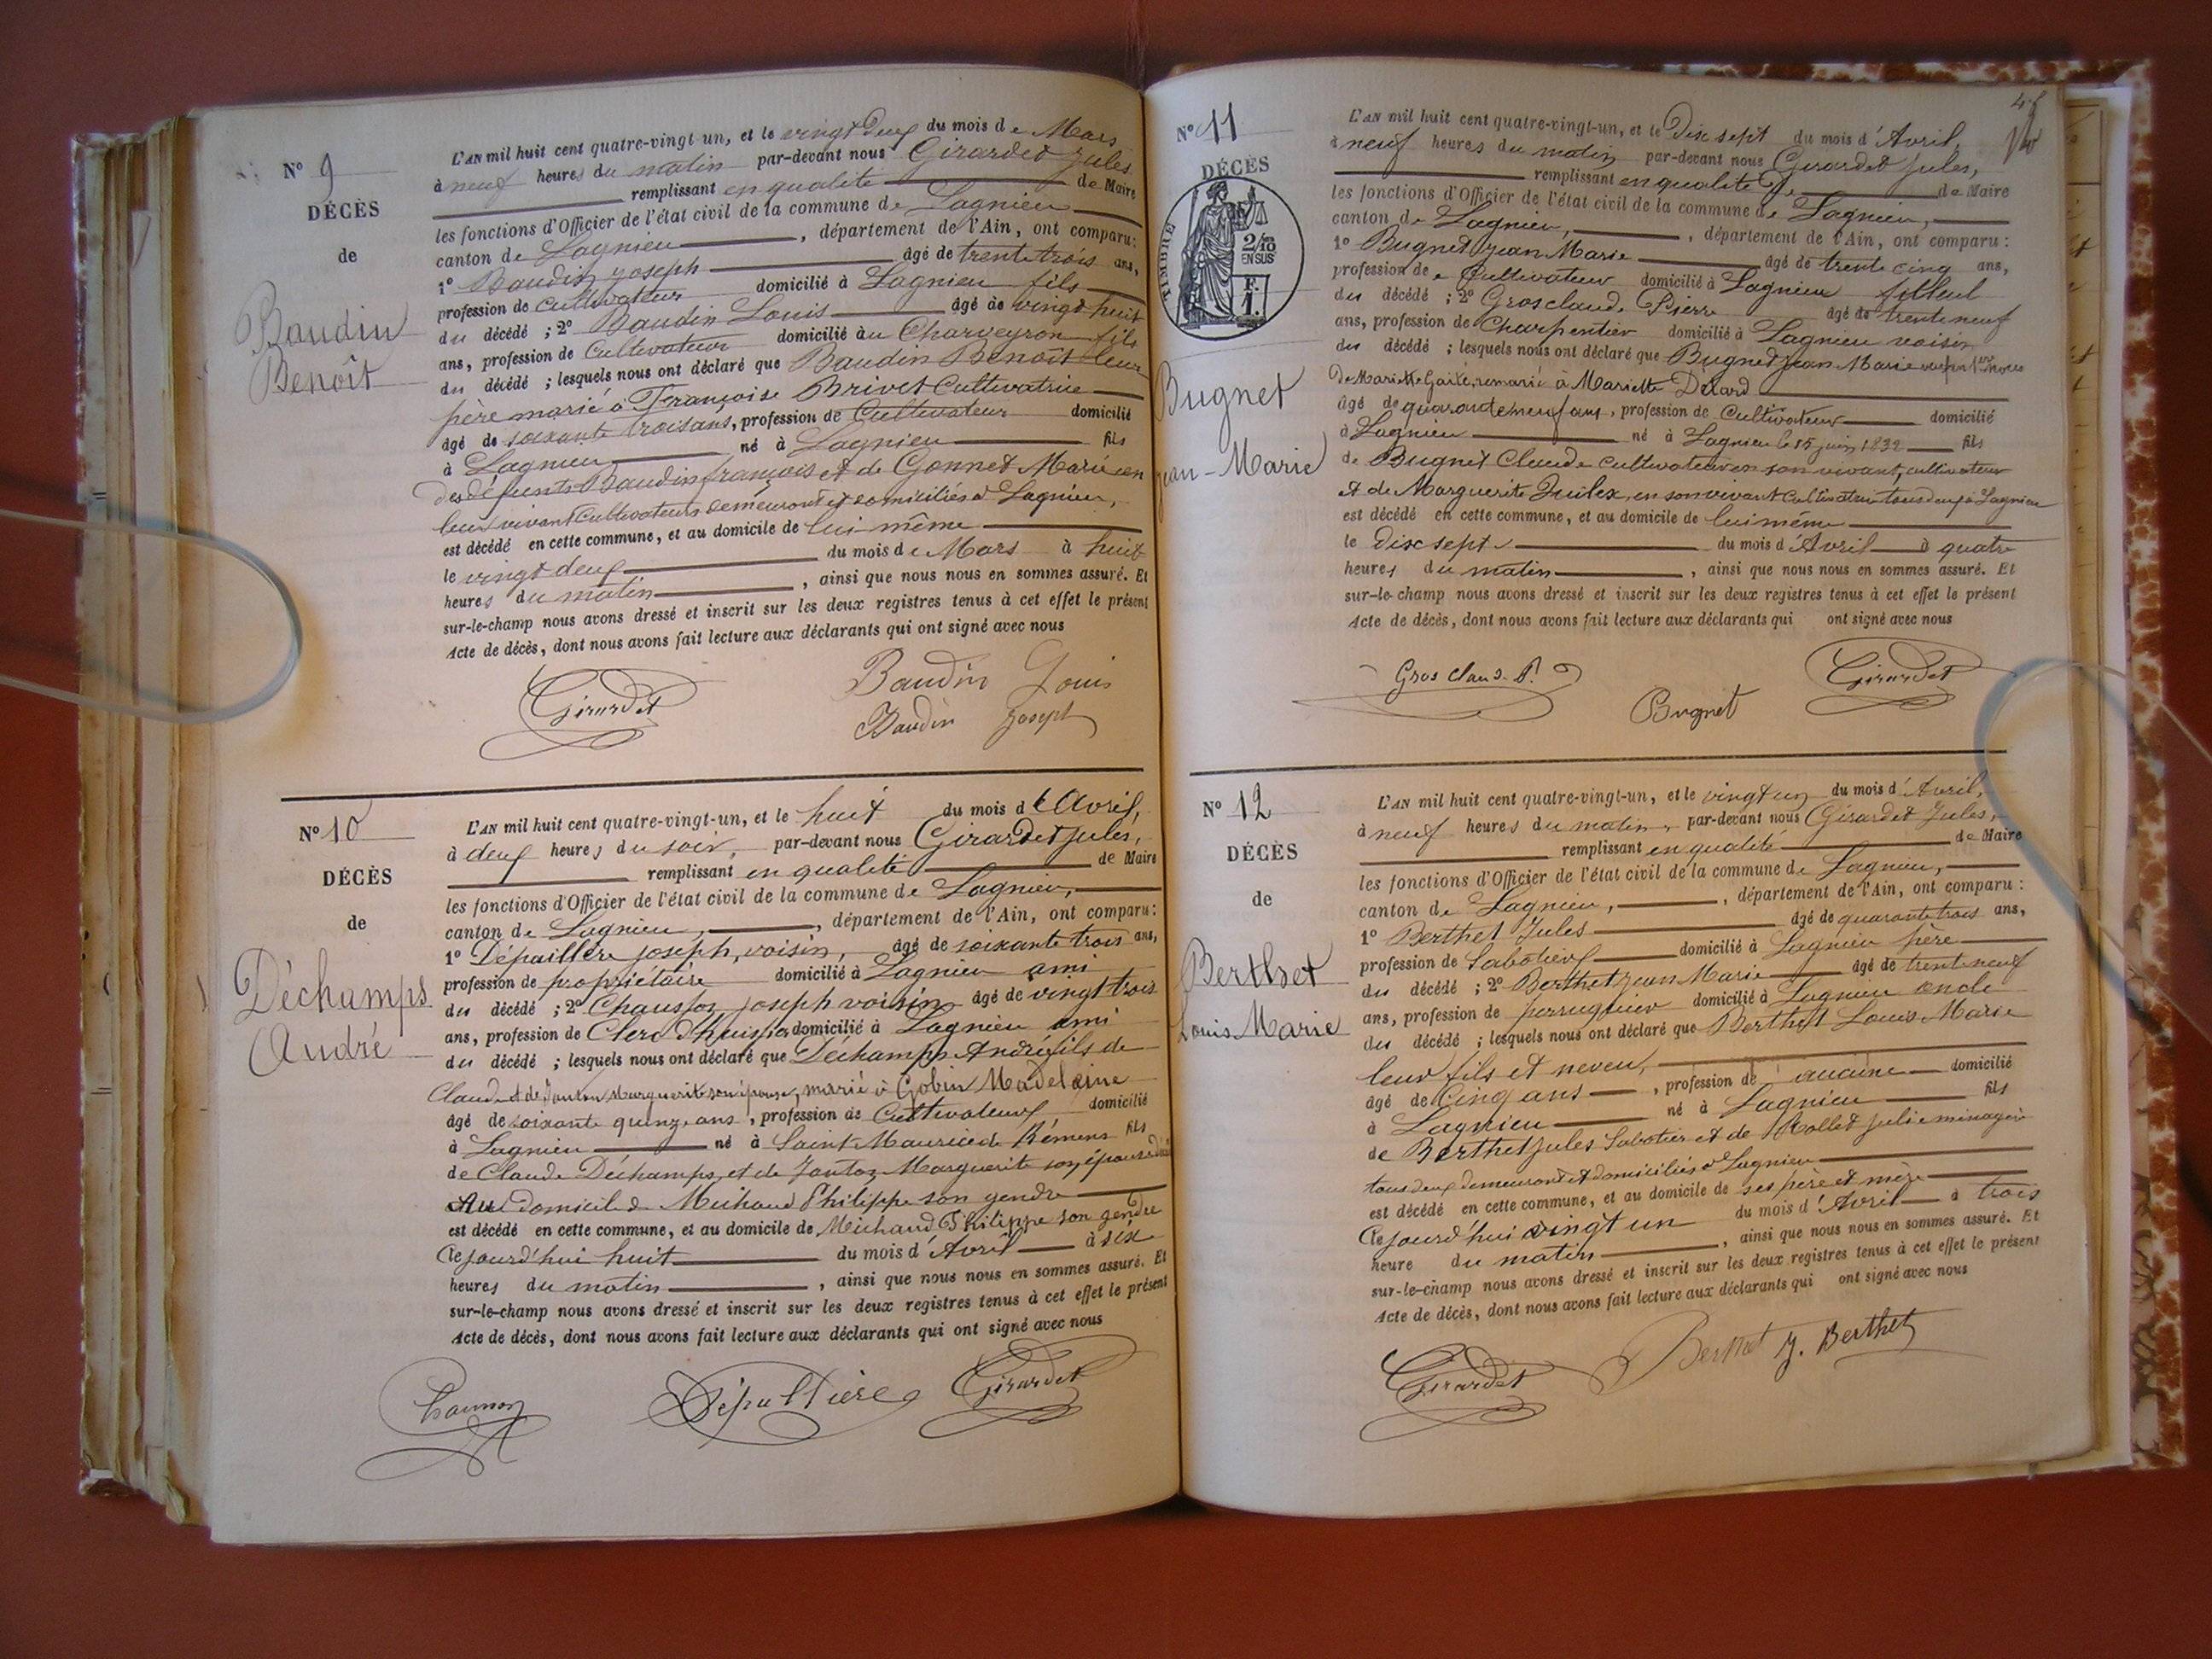 N° 9
DÉCÈS
de
Baudin
Benoît
L'AN mil huit cent quatre-vingt un, et le vingt deux du mois de Mars
à neuf heures du matin par-devant nous Girardet Jules
remplissant en qualité de Maire
les fonctions d'Officier de l'état civil de la commune de Lagnieu
canton de Lagnieu, département de l'Ain, ont comparu:
1° Baudin Joseph âgé de trente trois ans,
profession de cultivateur domicilié à Lagnieu fils
du décédé ; 2° Baudin Louis âgé de vingt huit
ans, profession de Cultivateur domicilié au Charveyron fils
du décédé ; lesquels nous ont déclaré que Baudin Benoît leur
père marié à Françoise Brivet Cultivatrice
âgé de soixante trois ans, profession de Cultivateur domicilié
à Lagnieu né à Lagnieu fils
des défunts Baudin françois et de Gonnet Marie en
leur vivant Cultivateurs demeurant et domiciliés à Lagnieu,
est décédé en cette commune, et au domicile de lui même
le vingt deux du mois de Mars à huit
heures du matin, ainsi que nous nous en sommes assuré. Et
sur-le-champ nous avons dressé et inscrit sur les deux registres tenus à cet effet le présent
Acte de décès, dont nous avons fait lecture aux déclarants qui ont signé avec nous
Girardet Baudin Louis
Baudin Joseph
N° 10
DÉCÈS
de
Déchamps
André
L'AN mil huit cent quatre-vingt-un, et le huit du mois d'Avril,
à deux heures du soir, par-devant nous Girardet Jules,
remplissant en qualité de Maire
les fonctions d'Officier de l'état civil de la commune de Lagnieu,
canton de Lagnieu, département de l'Ain, ont comparu:
1° Dépaillère Joseph, voisin, âgé de soixante trois ans,
profession de propriétaire domicilié à Lagnieu ami
du décédé ; 2° Joseph voisin âgé de vingt trois
ans, profession de Clerc d'huissier domicilié à Lagnieu ami
du décédé ; lesquels nous ont déclaré que Déchamps André fils de
Claude et de Marguerite son épouse, marié à Gobin Madeleine
âgé de soixante quinze ans, profession de Cultivateur domicilié
à Lagnieu né à Saint Maurice de Rémens fils
de Claude Déchamps et de Marguerite son épouse
Au domicile de Michaud Philippe son gendre
est décédé en cette commune, et au domicile de Michaud Philippe son gendre
Cejourd'hui huit du mois d'Avril à six
heures du matin, ainsi que nous nous en sommes assuré. Et
sur-le-champ nous avons dressé et inscrit sur les deux registres tenus à cet effet le présent
Acte de décès, dont nous avons fait lecture aux déclarants qui ont signé avec nous
Girardet
N° 11
DÉCÈS
TIMBRE
2/10
EN SUS
F.
1.
Bugnet
Jean-Marie
L'AN mil huit cent quatre-vingt-un, et le Dix sept du mois d'Avril,
à neuf heures du matin par-devant nous Girardet Jules,
remplissant en qualité de de Maire
les fonctions d'Officier de l'état civil de la commune de Lagnieu,
canton de Lagnieu, département de l'Ain, ont comparu :
1° Bugnet Jean Marie âgé de trente cinq ans,
profession de Cultivateur domicilié à Lagnieu filleul
du décédé ; 2° Grosclaude Pierre âgé de trente neuf
ans, profession de Charpentier domicilié à Lagnieu voisin
du décédé ; lesquels nous ont déclaré que Bugnet Jean Marie
De Mariette remarié à Mariette
âgé de quarante neuf ans, profession de Cultivateur domicilié
à Lagnieu né à Lagnieu le 15 juin 1832 fils
de Bugnet Claude cultivateur en son vivant, cultivateur
et de Marguerite en son vivant Cultivatrice tous deux à Lagnieu
est décédé en cette commune, et au domicile de lui même
le dix sept du mois d'Avril à quatre
heures du matin, ainsi que nous nous en sommes assuré. Et
sur-le-champ nous avons dressé et inscrit sur les deux registres tenus à cet effet le présent
Acte de décès, dont nous avons fait lecture aux déclarants qui ont signé avec nous
Grosclaude P. Girardet
Bugnet
N° 12
DÉCÈS
de
Berthet
Louis Marie
L'AN mil huit cent quatre-vingt-un, et le vingt un du mois d'Avril,
à neuf heures du matin, par-devant nous Girardet Jules,
remplissant en qualité de Maire
les fonctions d'Officier de l'état civil de la commune de Lagnieu,
canton de Lagnieu, département de l'Ain, ont comparu :
1° Berthet Jules âgé de quarante trois ans,
profession de Sabotier domicilié à Lagnieu père
du décédé ; 2° Berthet Jean Marie âgé de trente neuf
ans, profession de perruquier domicilié à Lagnieu oncle
du décédé ; lesquels nous ont déclaré que Berthet Louis Marie
leur fils et neveu,
âgé de Cinq ans, profession de aucune domicilié
à Lagnieu né à Lagnieu fils
de Berthet Jules Sabotier et de Rollet Julie ménagère
tous deux demeurant et domiciliés à Lagnieu
est décédé en cette commune, et au domicile de ses père et mère
Cejourd'hui vingt un du mois d'Avril à trois
heure du matin, ainsi que nous nous en sommes assuré. Et
sur-le-champ nous avons dressé et inscrit sur les deux registres tenus à cet effet le présent
Acte de décès, dont nous avons fait lecture aux déclarants qui ont signé avec nous
Girardet Berthet J. Berthet